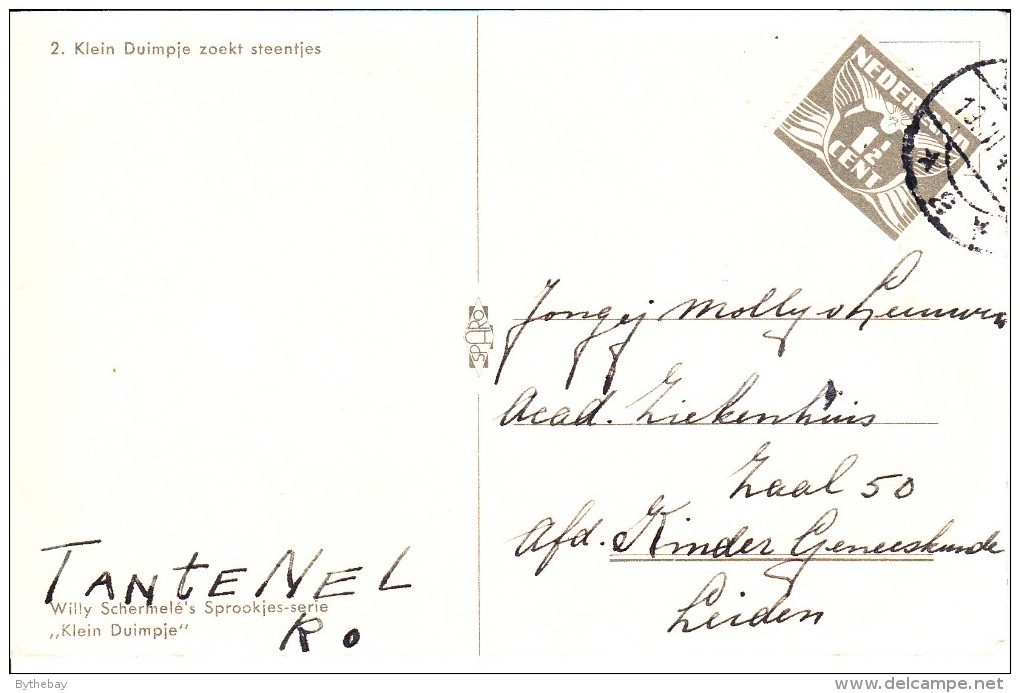 2. Klein Duimpje zoekt steentjes
NEDERLAND
1½
CENT
SPARO
Jongej Molly v Leeuwen
Acad. Ziekenhuis
Zaal 50
Afd. Kinder Geneeskunde
Leiden
TANtE NEL
Ro
Willy Schermelé's Sprookjes-serie
„Klein Duimpje"
Bythebay
delcampe.net